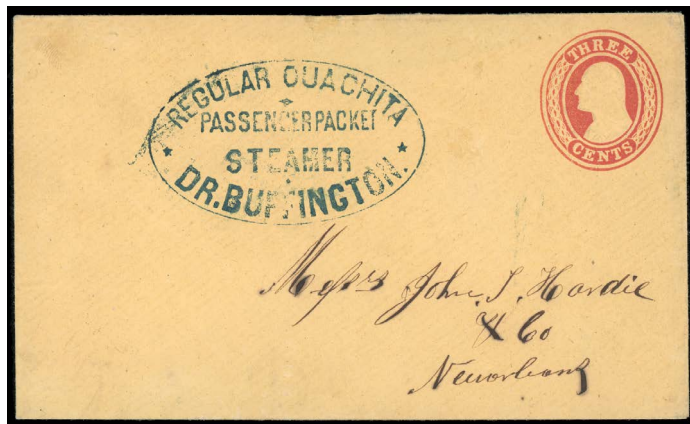 REGULAR OUACHITA
PASSENGER PACKET
STEAMER
DR. BUFFINGTON.
THREE
CENTS
Messrs John. I. Hardie
& Co
Neworleans